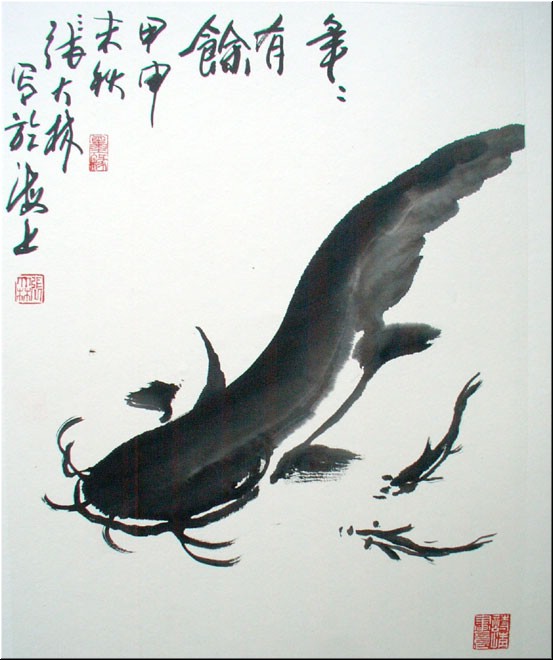 年〻有餘
甲申
末秋
張大林
写於海上